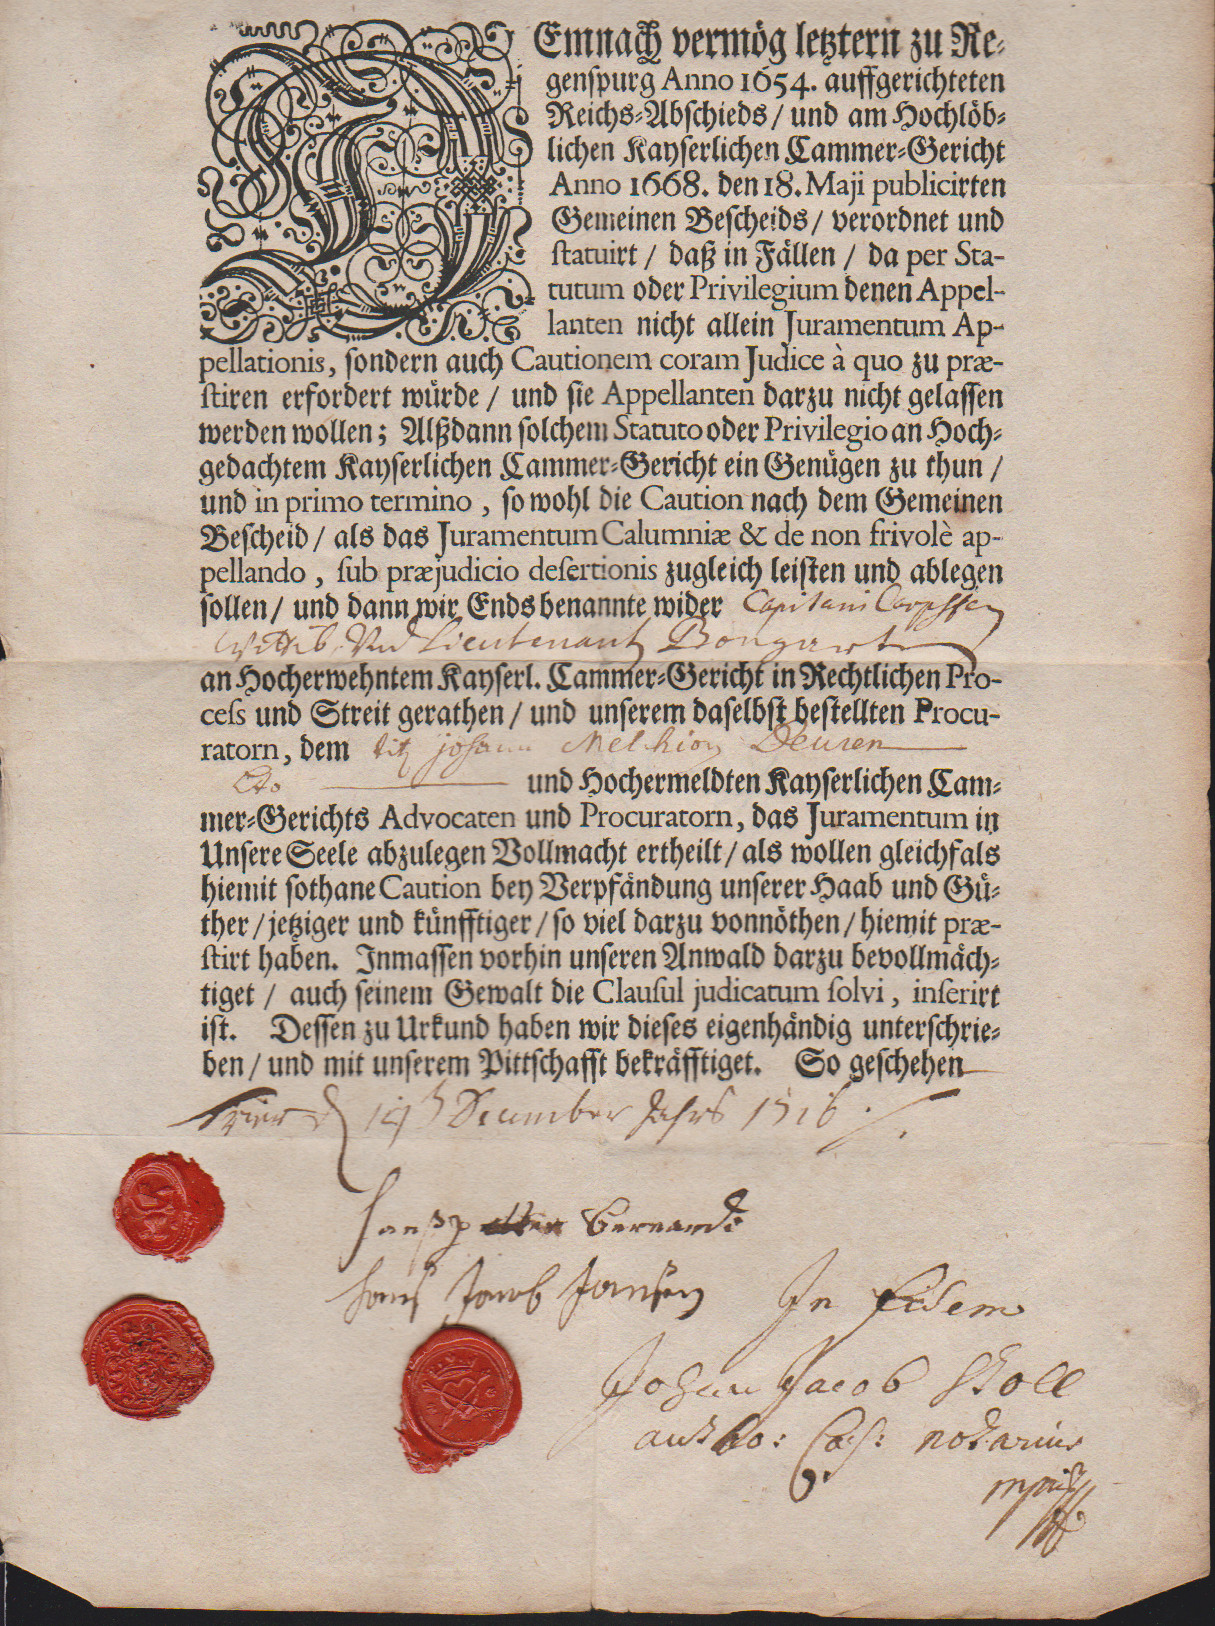 DEmnach vermög letztern zu Re-
genspurg Anno 1654. auffgerichteten
Reichs-Abschieds / und am Hochlöb-
lichen Kayserlichen Cammer-Gericht
Anno 1668. den 18. Maji publicirten
Gemeinen Bescheids / verordnet und
statuirt / daß in Fällen / da per Sta-
tutum oder Privilegium denen Appel-
lanten nicht allein Juramentum Ap-
pellationis, sondern auch Cautionem coram Judice à quo zu præ-
stiren erfordert würde / und sie Appellanten darzu nicht gelassen
werden wollen; Alßdann solchem Statuto oder Privilegio an Hoch-
gedachtem Kayserlichen Cammer-Gericht ein Genügen zu thun /
und in primo termino, so wohl die Caution nach dem Gemeinen
Bescheid / als das Juramentum Calumniæ & de non frivolè ap-
pellando, sub præjudicio desertionis zugleich leisten und ablegen
sollen / und dann wir Ends benannte wider Capitani
Wittib Und Lieutenant Bongart
an Hocherwehntem Kayserl. Cammer-Gericht in Rechtlichen Pro-
cess und Streit gerathen / und unserem daselbst bestellten Procu-
ratorn, dem tit Johann Melchior Deuren
und Hochermeldten Kayserlichen Cam-
mer-Gerichts Advocaten und Procuratorn, das Juramentum in
Unsere Seele abzulegen Vollmacht ertheilt / als wollen gleichfals
hiemit sothane Caution bey Verpfändung unserer Haab und Gü-
ther / jetziger und künfftiger / so viel darzu vonnöthen / hiemit præ-
stirt haben. Inmassen vorhin unseren Anwald darzu bevollmäch-
tiget / auch seinem Gewalt die Clausul judicatum solvi, inserirt
ist. Dessen zu Urkund haben wir dieses eigenhändig unterschrie-
ben / und mit unserem Pittschafft bekräfftiget. So geschehen
Trier d 19 December Jahrs 1716
Hanß Bernardi
Hans Jacob Jansen In fidem
Johan Jacob Skoll
autho: Caes: notarius
mpria